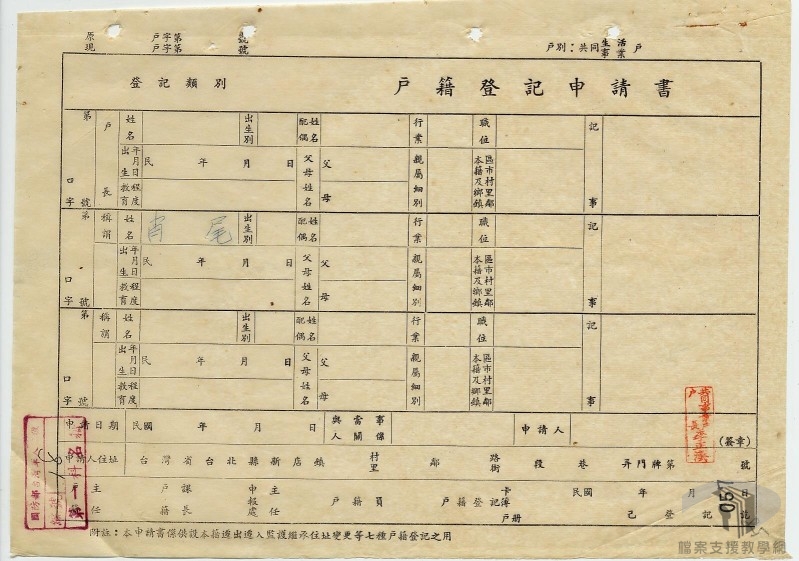 原 戶字第 號
現 戶字第 號
戶別：共同生活戶
事業
登記類別 戶籍登記申請書
第 戶 姓名 出生別 配偶姓名 行業 職位 記
口 長 出生年月日 民 年 月 日 父母姓名 父 親屬細別 本籍及鄉鎮區市村里鄰
字 號 教育程度 母 事
第 稱謂 姓名 肖 尾 出生別 配偶姓名 行業 職位 記
口 出生年月日 民 年 月 日 父母姓名 父 親屬細別 本籍及鄉鎮區市村里鄰
字 號 教育程度 母 事
第 稱謂 姓名 出生別 配偶姓名 行業 職位 記
口 出生年月日 民 年 月 日 父母姓名 父 親屬細別 本籍及鄉鎮區市村里鄰
字 號 教育程度 母 事
申請日期 民國 年 月 日 與當事人關係 申請人 (簽章)
申請人住址 台灣省台北縣新店鎮 村里 鄰 路街 段 巷 弄門牌第 號
戶 主 戶 課 申 主 戶籍員 戶籍登記 卡 民國 年 月 日
任 籍 長 報處 任 簿 戶冊 已 登 記
057
附註：本申請書係供設本籍遷出遷入監護繼承住址變更等七種戶籍登記之用
檔案支援教學網